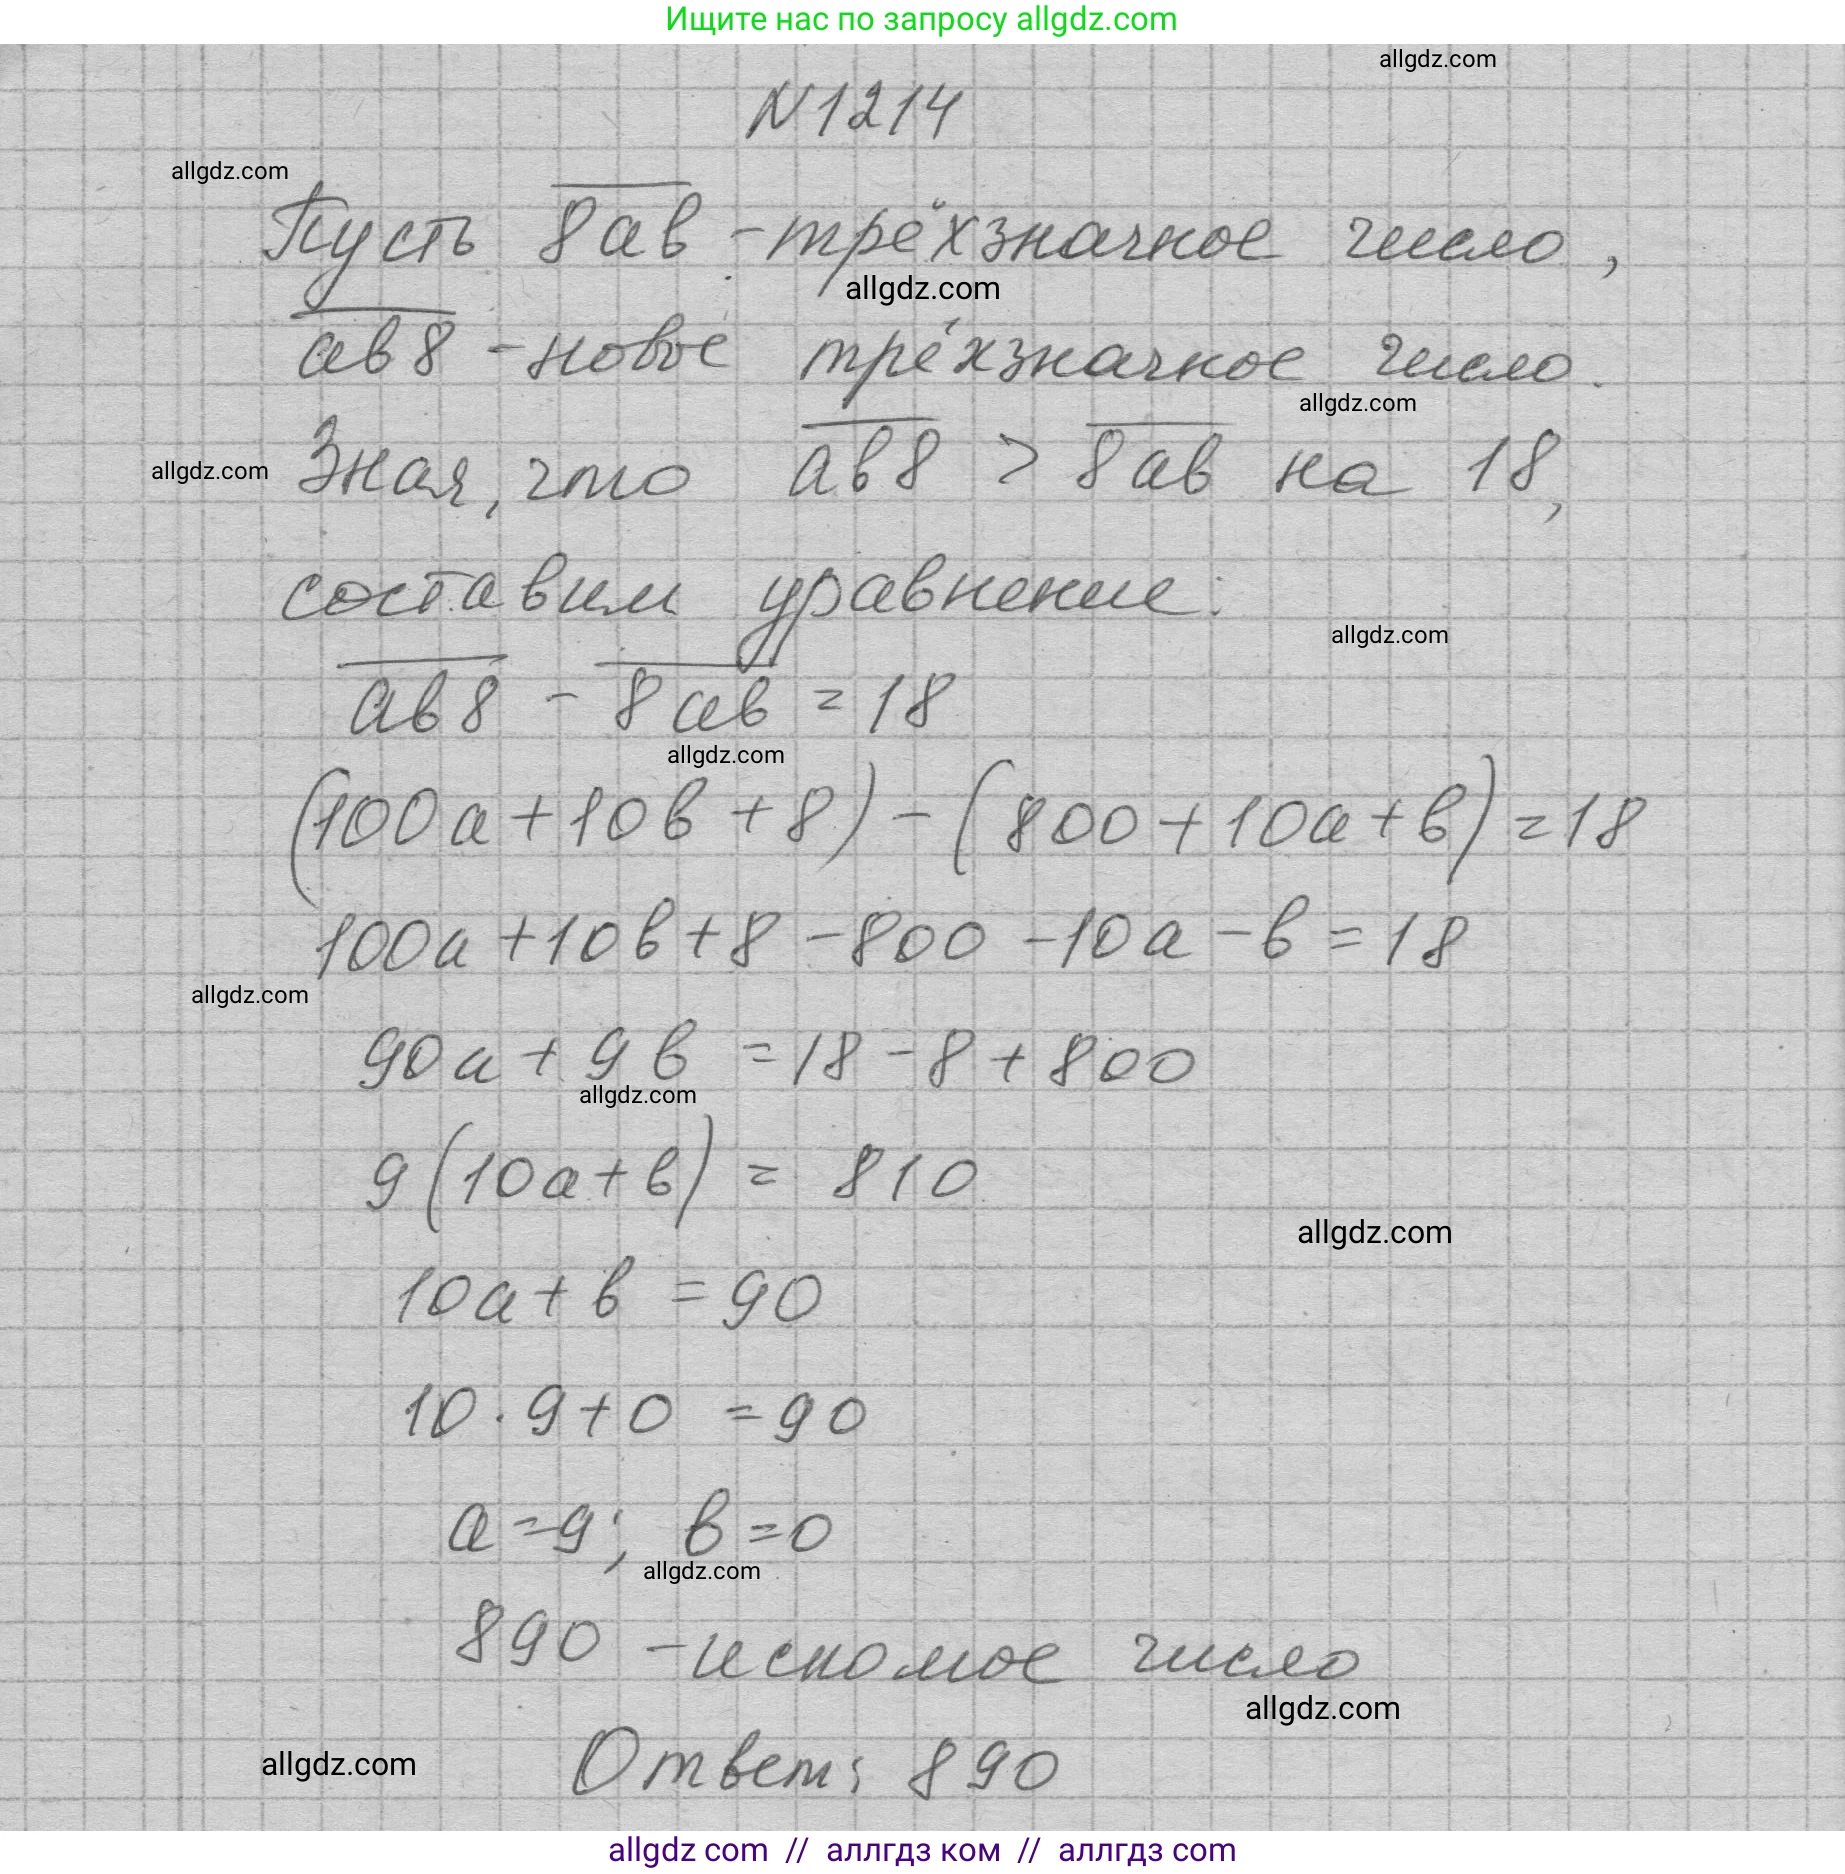 Ищите нас по запросу allgdz.com
allgdz.com
N1214
allgdz.com
Пусть 8ав - трёхзначное число,
allgdz.com
ав8 - новое трёхзначное число.
allgdz.com
Зная, что ав8 > 8ав на 18,
allgdz.com
составим уравнение:
allgdz.com
ав8 - 8ав = 18
allgdz.com
(100а + 10в + 8) - (800 + 10а + в) = 18
100а + 10в + 8 - 800 - 10а - в = 18
allgdz.com
90а + 9в = 18 - 8 + 800
allgdz.com
9(10а + в) = 810
allgdz.com
10а + в = 90
10 · 9 + 0 = 90
а = 9; в = 0
allgdz.com
890 - искомое число
allgdz.com
Ответ: 890
allgdz.com
allgdz com // аллгдз ком // аллгдз com